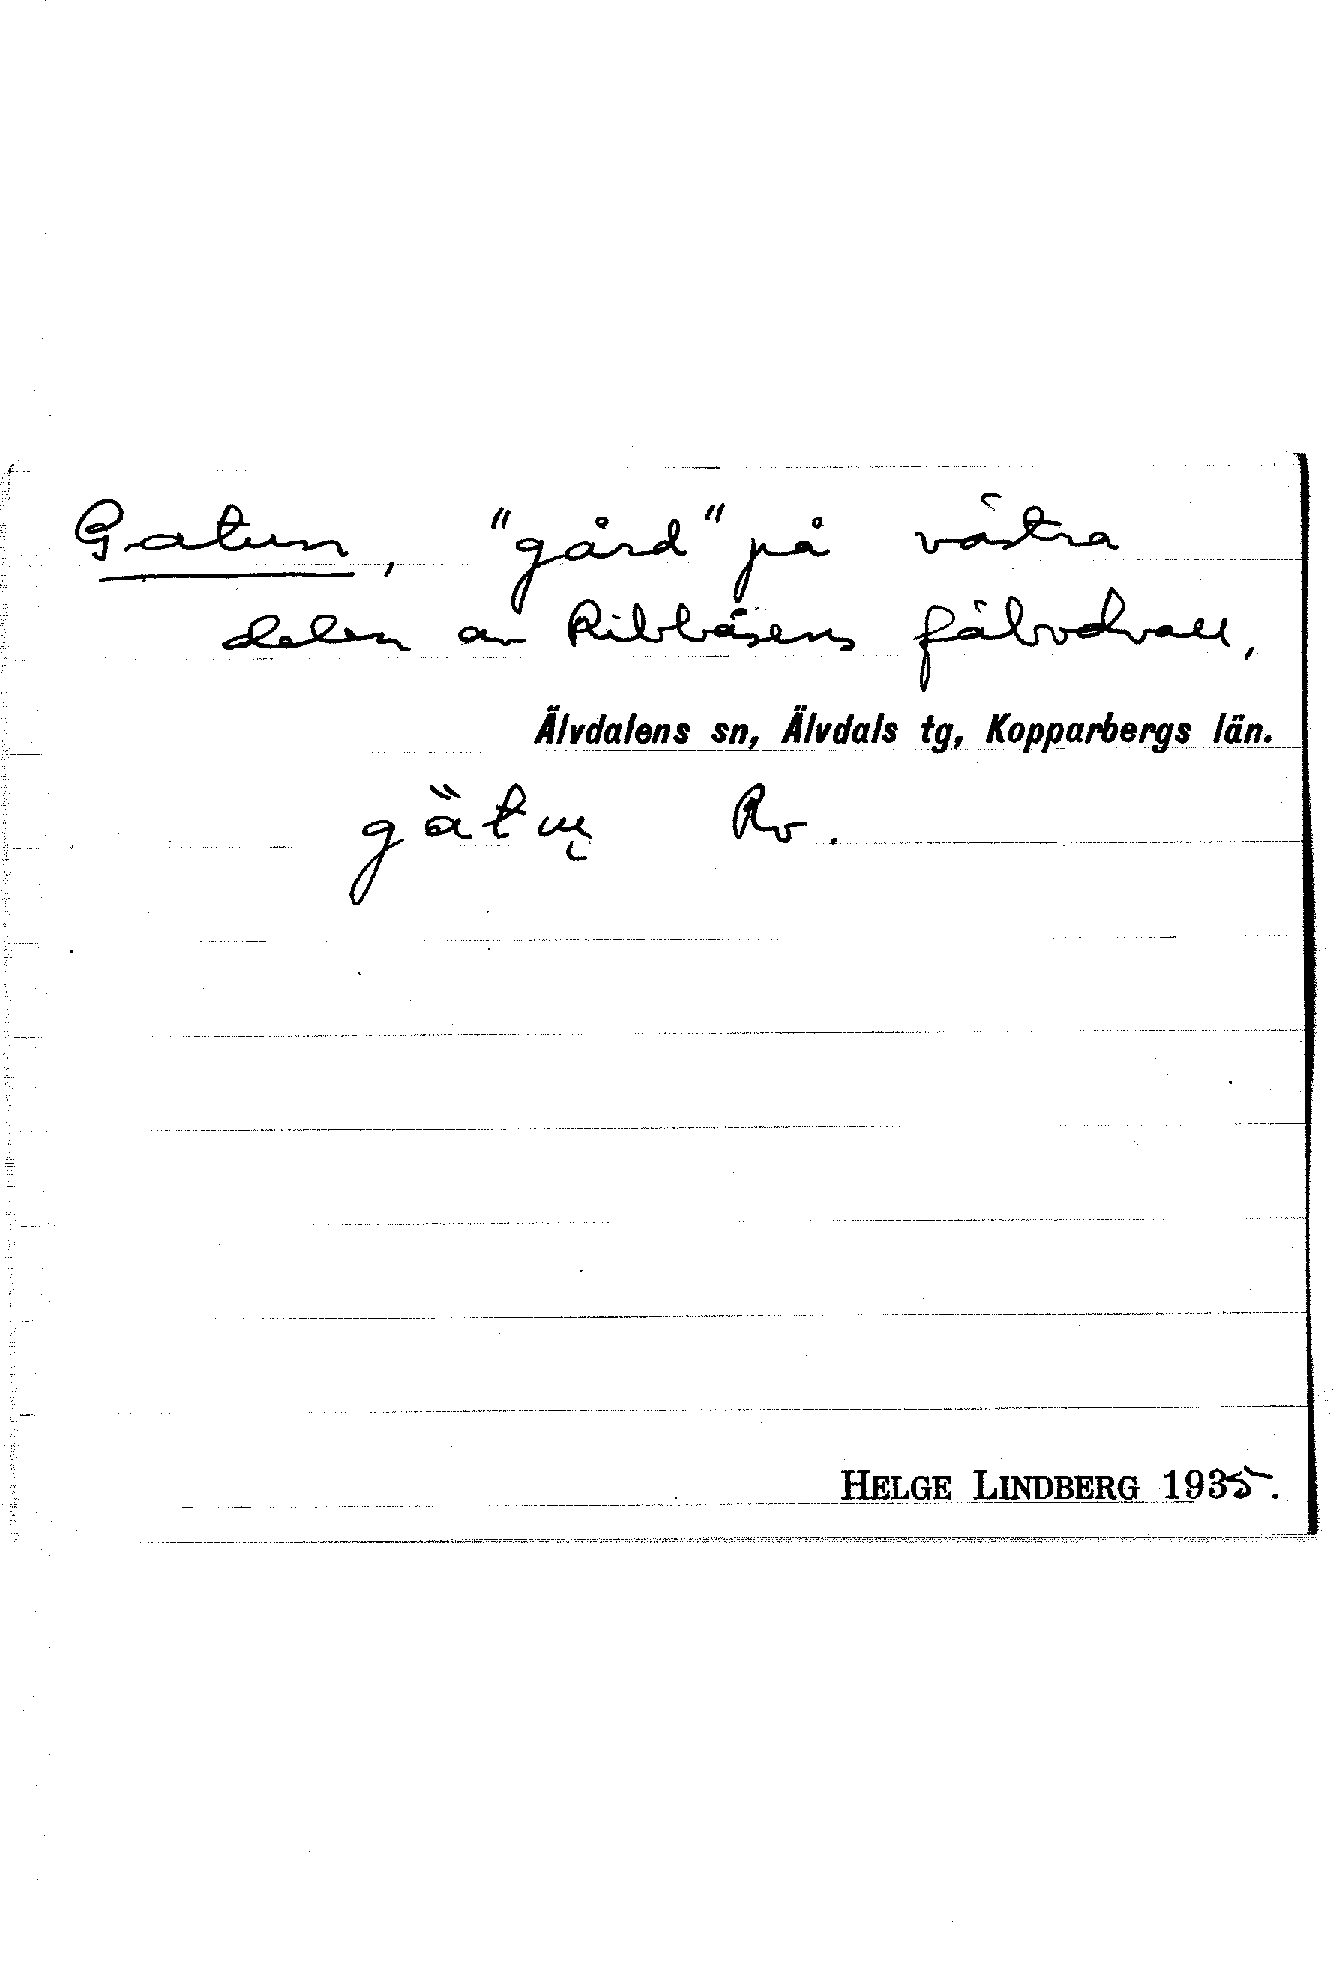 Gatun, "gård" på västra
delen av Ribbåsens fäbodvall,
Älvdalens sn, Älvdals tg, Kopparbergs län.
gätuų Rv.
HELGE LINDBERG 1935.